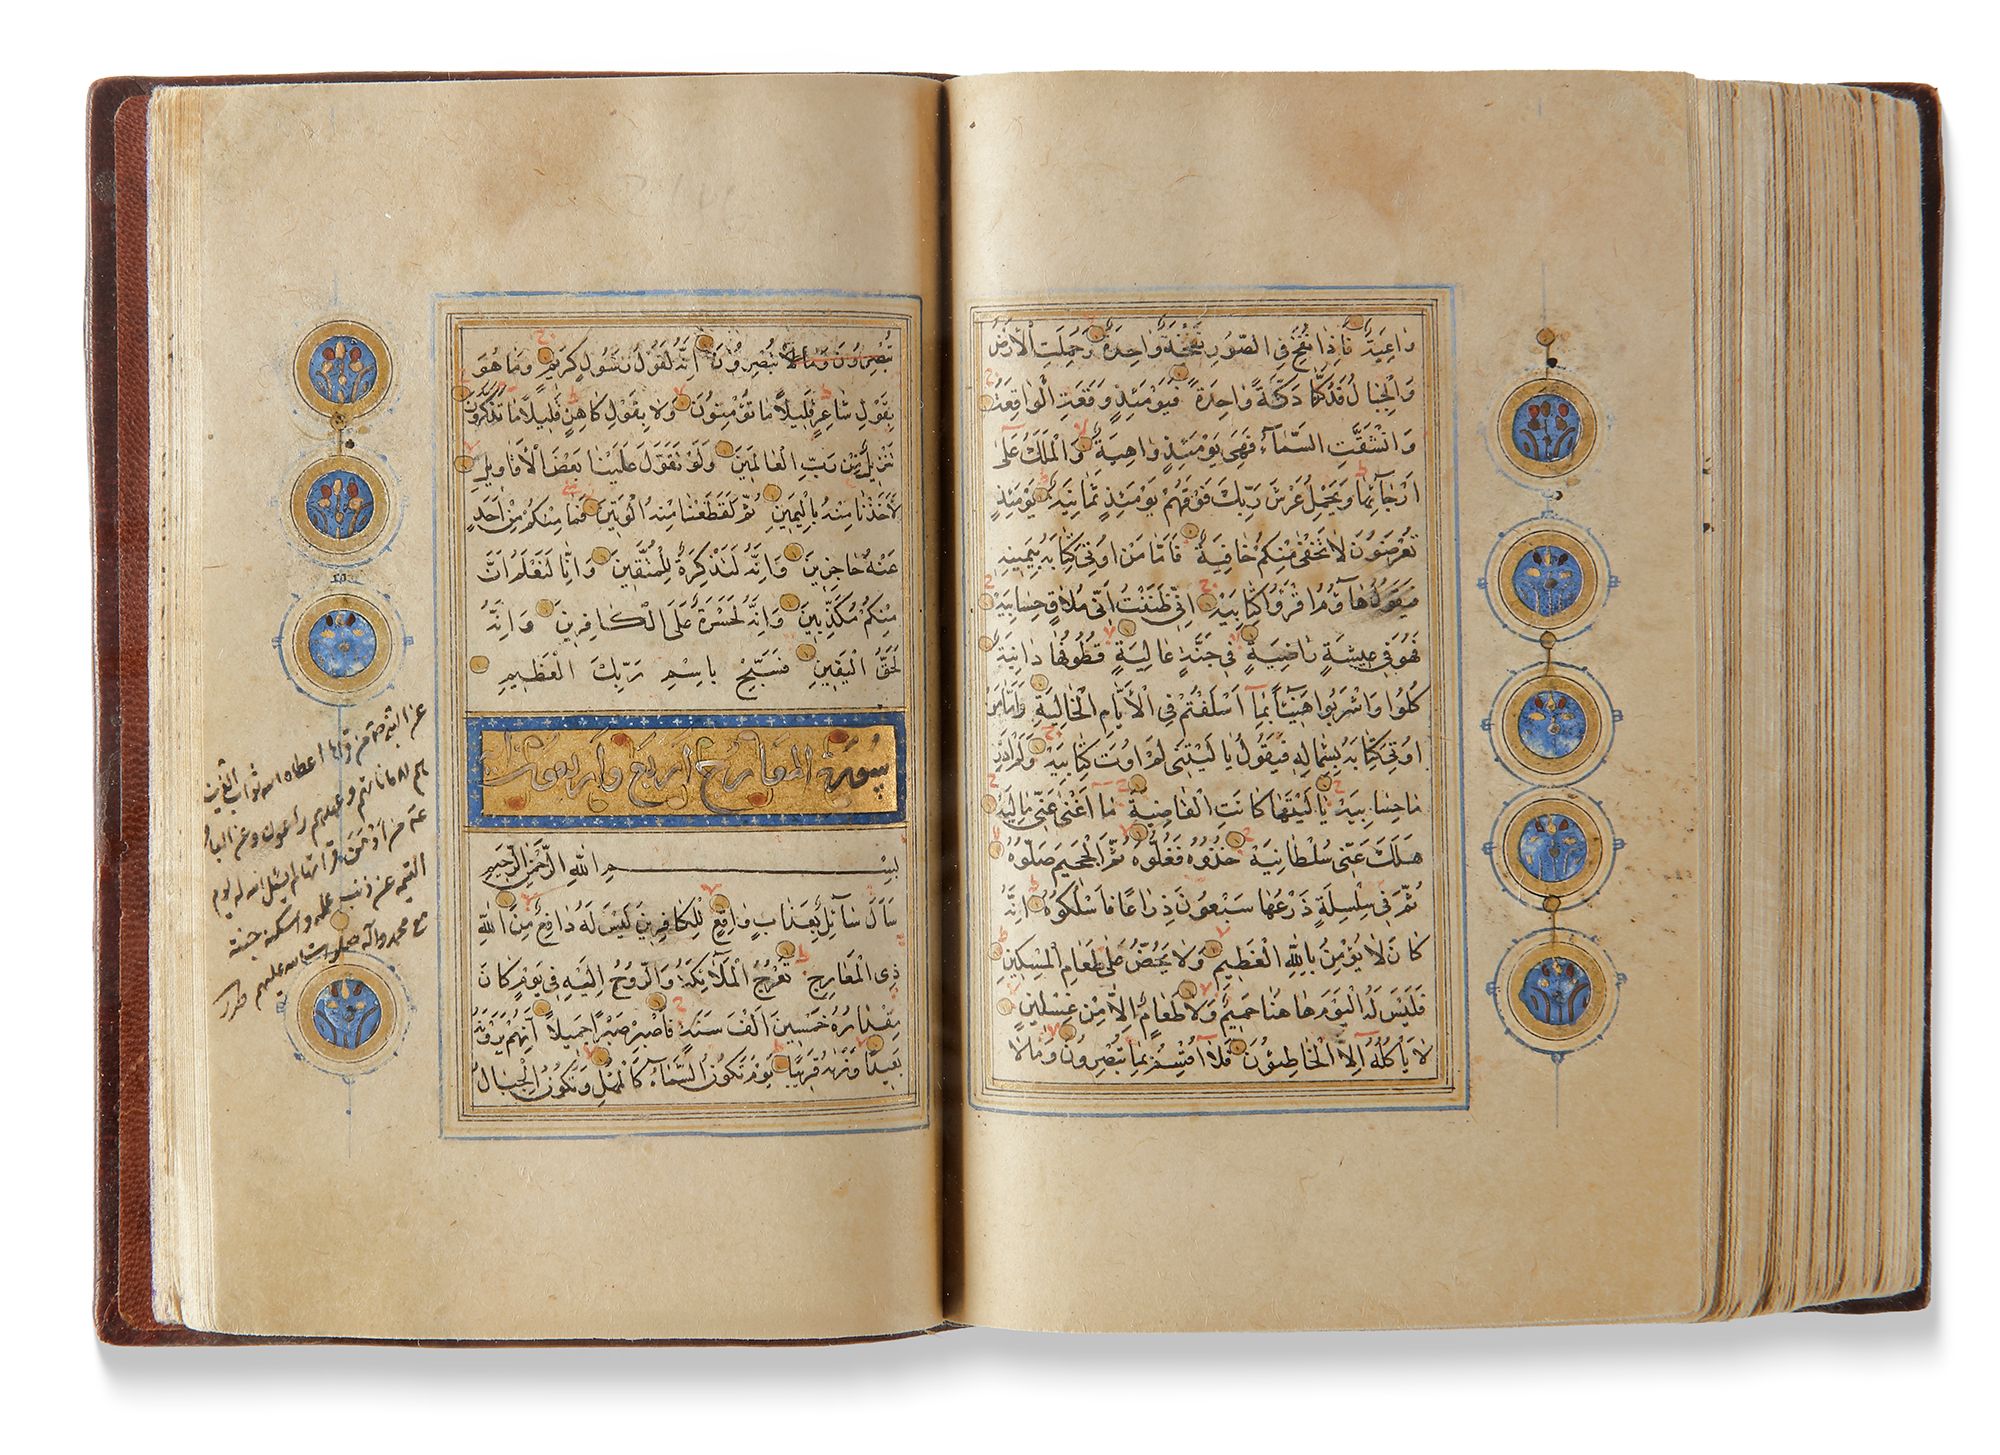 وَاعِيَةٌ فَإِذَا نُفِخَ فِي الصُّورِ نَفْخَةٌ وَاحِدَةٌ وَحُمِلَتِ الْأَرْضُ
وَالْجِبَالُ فَدُكَّتَا دَكَّةً وَاحِدَةً فَيَوْمَئِذٍ وَقَعَتِ الْوَاقِعَةُ
وَانْشَقَّتِ السَّمَاءُ فَهِيَ يَوْمَئِذٍ وَاهِيَةٌ وَالْمَلَكُ عَلَى
أَرْجَائِهَا وَيَحْمِلُ عَرْشَ رَبِّكَ فَوْقَهُمْ يَوْمَئِذٍ ثَمَانِيَةٌ يَوْمَئِذٍ
تُعْرَضُونَ لَا تَخْفَى مِنْكُمْ خَافِيَةٌ فَأَمَّا مَنْ أُوتِيَ كِتَابَهُ بِيَمِينِهِ
فَيَقُولُ هَاؤُمُ اقْرَؤُا كِتَابِيَهْ إِنِّي ظَنَنْتُ أَنِّي مُلَاقٍ حِسَابِيَهْ
فَهُوَ فِي عِيشَةٍ رَاضِيَةٍ فِي جَنَّةٍ عَالِيَةٍ قُطُوفُهَا دَانِيَةٌ
كُلُوا وَاشْرَبُوا هَنِيئًا بِمَا أَسْلَفْتُمْ فِي الْأَيَّامِ الْخَالِيَةِ وَأَمَّا مَنْ
أُوتِيَ كِتَابَهُ بِشِمَالِهِ فَيَقُولُ يَا لَيْتَنِي لَمْ أُوتَ كِتَابِيَهْ وَلَمْ أَدْرِ
مَا حِسَابِيَهْ يَا لَيْتَهَا كَانَتِ الْقَاضِيَةَ مَا أَغْنَى عَنِّي مَالِيَهْ
هَلَكَ عَنِّي سُلْطَانِيَهْ خُذُوهُ فَغُلُّوهُ ثُمَّ الْجَحِيمَ صَلُّوهُ
ثُمَّ فِي سِلْسِلَةٍ ذَرْعُهَا سَبْعُونَ ذِرَاعًا فَاسْلُكُوهُ إِنَّهُ
كَانَ لَا يُؤْمِنُ بِاللَّهِ الْعَظِيمِ وَلَا يَحُضُّ عَلَى طَعَامِ الْمِسْكِينِ
فَلَيْسَ لَهُ الْيَوْمَ هَاهُنَا حَمِيمٌ وَلَا طَعَامٌ إِلَّا مِنْ غِسْلِينٍ
لَا يَأْكُلُهُ إِلَّا الْخَاطِئُونَ فَلَا أُقْسِمُ بِمَا تُبْصِرُونَ وَمَا لَا
تُبْصِرُونَ وَمَا لَا تُبْصِرُونَ إِنَّهُ لَقَوْلُ رَسُولٍ كَرِيمٍ وَمَا هُوَ
بِقَوْلِ شَاعِرٍ قَلِيلًا مَا تُؤْمِنُونَ وَلَا بِقَوْلِ كَاهِنٍ قَلِيلًا مَا تَذَكَّرُونَ
تَنْزِيلٌ مِنْ رَبِّ الْعَالَمِينَ وَلَوْ تَقَوَّلَ عَلَيْنَا بَعْضَ الْأَقَاوِيلِ
لَأَخَذْنَا مِنْهُ بِالْيَمِينِ ثُمَّ لَقَطَعْنَا مِنْهُ الْوَتِينَ فَمَا مِنْكُمْ مِنْ أَحَدٍ
عَنْهُ حَاجِزِينَ وَإِنَّهُ لَتَذْكِرَةٌ لِلْمُتَّقِينَ وَإِنَّا لَنَعْلَمُ أَنَّ
مِنْكُمْ مُكَذِّبِينَ وَإِنَّهُ لَحَسْرَةٌ عَلَى الْكَافِرِينَ وَإِنَّهُ
لَحَقُّ الْيَقِينِ فَسَبِّحْ بِاسْمِ رَبِّكَ الْعَظِيمِ
سُورَةُ الْمَعَارِجِ أَرْبَعَ وَأَرْبَعُونَ
بِسْمِ اللَّهِ الرَّحْمَنِ الرَّحِيمِ
سَأَلَ سَائِلٌ بِعَذَابٍ وَاقِعٍ لِلْكَافِرِينَ لَيْسَ لَهُ دَافِعٌ مِنَ اللَّهِ
ذِي الْمَعَارِجِ تَعْرُجُ الْمَلَائِكَةُ وَالرُّوحُ إِلَيْهِ فِي يَوْمٍ كَانَ
مِقْدَارُهُ خَمْسِينَ أَلْفَ سَنَةٍ فَاصْبِرْ صَبْرًا جَمِيلًا إِنَّهُمْ يَرَوْنَهُ
بَعِيدًا وَنَرَاهُ قَرِيبًا يَوْمَ تَكُونُ السَّمَاءُ كَالْمُهْلِ وَتَكُونُ الْجِبَالُ